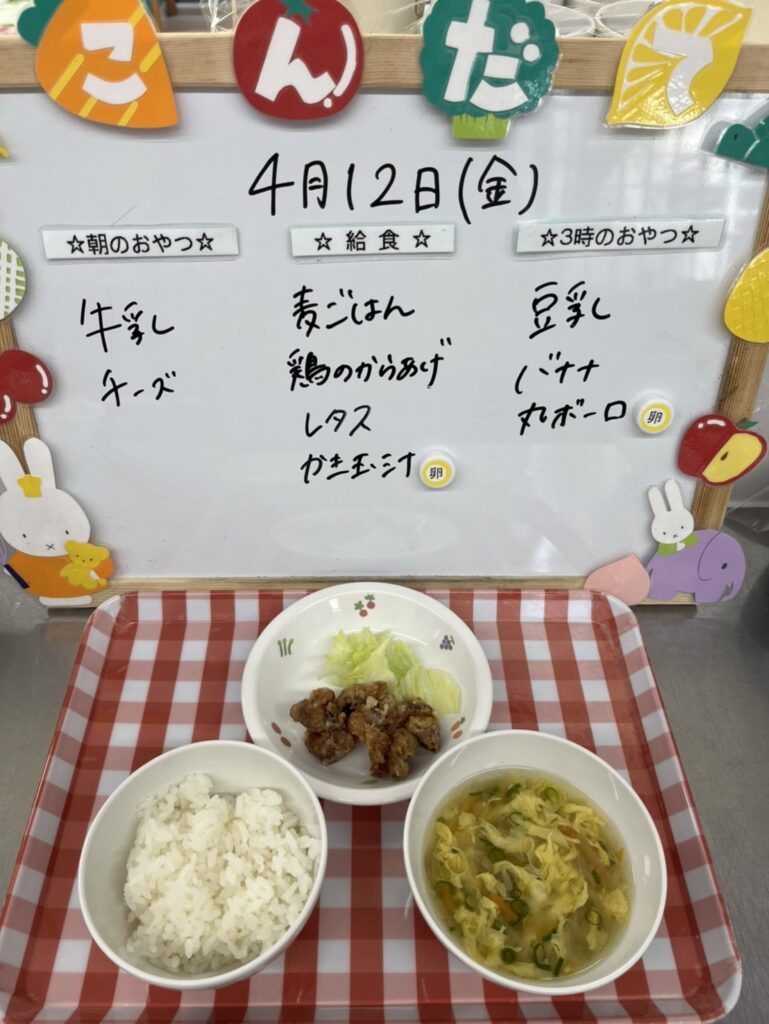 こんだて
4月12日(金)
☆朝のおやつ☆
牛乳
チーズ
☆給食☆
麦ごはん
鶏のからあげ
レタス
かき玉汁 卵
☆3時のおやつ☆
豆乳
バナナ
丸ボーロ 卵